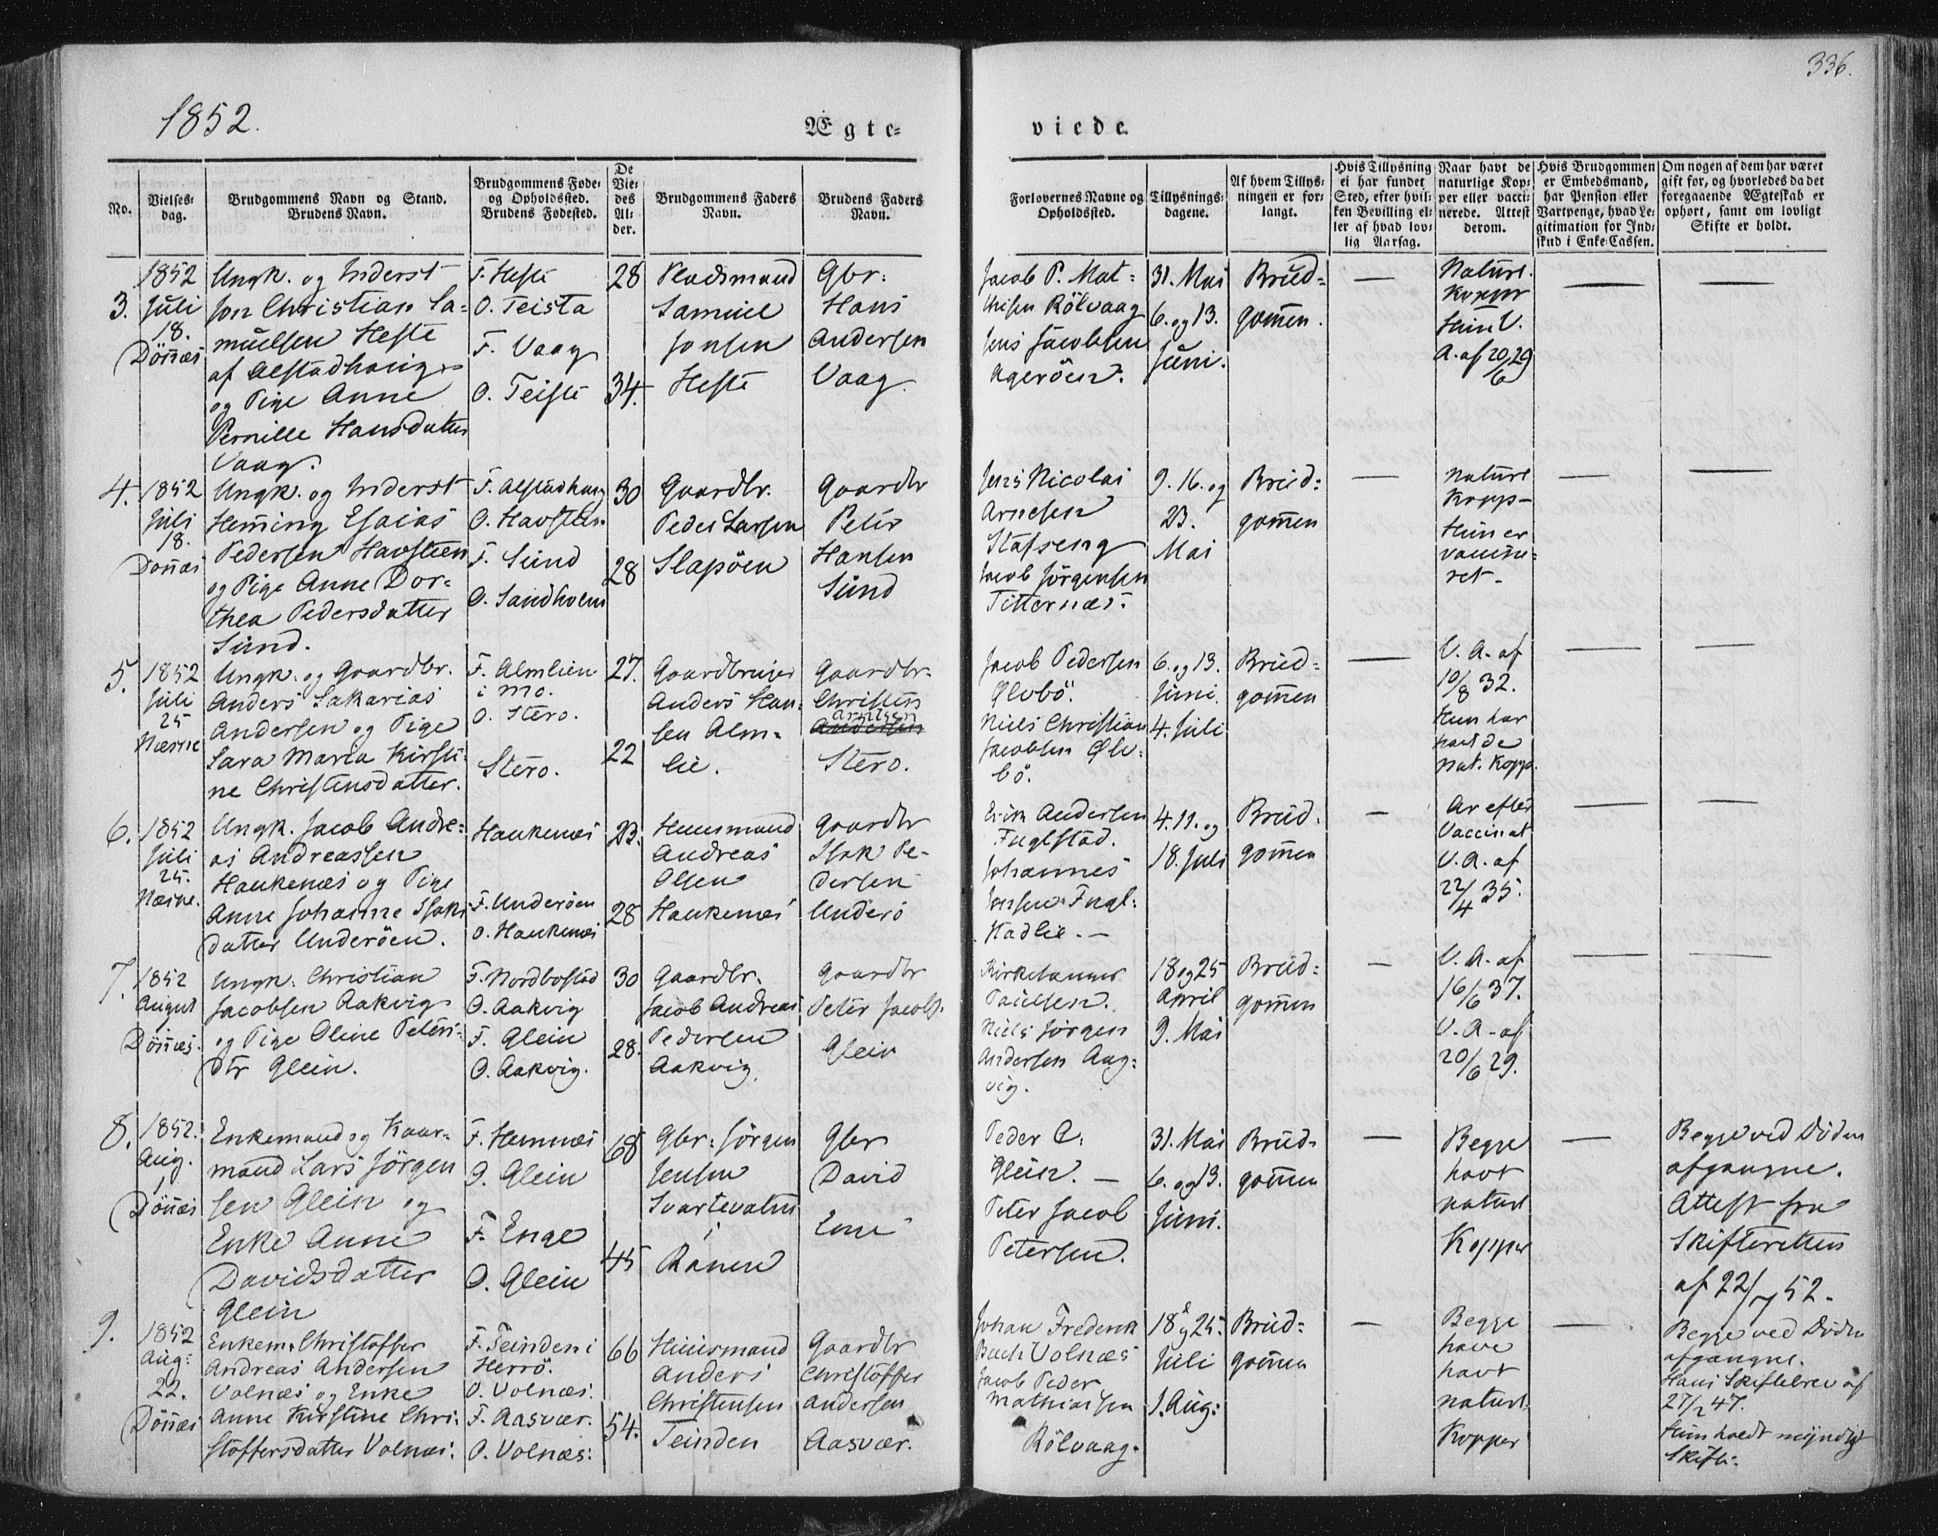 336.
1852.
Ægte-
viede.
No.
Vielses-
dag.
Brudgommens Navn og Stand.
Brudens Navn.
Brudgommens Føde-
og Opholdssted.
Brudens Fødested.
De
Vie-
des
Al-
der.
Brudgommens Faders
Navn.
Brudens Faders
Navn.
Forlovernes Navne og
Opholdssted.
Tillysnings-
dagene.
Af hvem Tillys-
ningen er for-
langt.
Hvis Tillysning
ei har fundet
Sted, efter hvil-
ken Bevilling el-
ler af hvad lov-
lig Aarsag.
Naar havt de
naturlige Kop-
per eller vacci-
nerede. Attest
derom.
Hvis Brudgommen
er Embedsmand,
har Pension eller
Vartpenge, hvad Le-
gitimation for Ind-
skud i Enke-Cassen.
Om nogen af dem har været
gift for, og hvorledes da det
foregaaende Ægteskab er
ophørt, samt om lovligt
Skifte er holdt.
3.
1852
Juli
18.
Dönnæs
Ungk. og Inderst
Jon Christian Sa-
muelsen Hefte
af Alstadhoug
og Pige Anne
Pernille Hansdatter
Vaag.
F. Hefte
O. Teista
F. Vaag
O. Teiste
28
34.
Pladsmand
Samuel
Jonsen
Hefte
Gbr:
Hans
Andersen
Vaag.
Jacob P. Mat-
thisen Rölvaag
Jens Jacobsen
Ageröen.
31. Mai
6. og 13.
Juni.
Brud-
gomen.
Naturl.
Kopper
Hun V.
A. af 20/6 29
4.
1852
Juli
18.
Dönnæs
Ungk. og Inderst
Heming Esaias
Pedersen Havstien
og Pige Anne Dor-
thea Pedersdatter
Sund.
F. Alstadhoug
O. Havstien
F. Sund
O. Sandholm
30
28
Gaardbr.
Peder Larsen
Slapöen
Gaardbr
Peter
Hansen
Sund
Jens Nicolai
Arnesen
Stafseng
Jacob Jörgensen
Titternæs.
9. 16. og
23.
Mai
Brud-
gomen
Naturl
Kopp-
Hun er
vaccine-
ret.
5.
1852
Juli
25
Næsne
Ungk. og Gaardbr.
Anders Sakarias
Andersen og Pige
Sara Maria Kirsti-
ne Christensdatter.
F. Almlien
i Mo.
O. Stero.
Stero.
27.
22
Gaardbruger
Anders Han-
sen Alm-
lie.
Gaardbr.
Christen
Arntsen
Andersen
Stero.
Jacob Pedersen
Ølvbö.
Niels Christian
Jacobsen Øli-
bö.
6. og 13.
Juni.
4. Juli
Brud-
gomen
V. A. af
10/8 32.
Hun har
havt de
nat. Kopp.
6.
1852
Juli
25.
Næsne.
Ungk. Jacob Andre-
as Andreassen
Haukenæs og Pige
Anne Johanne Isaks
datter Underöen.
Haukenæs
F. Underöen
O. Haukenæs
23.
28
Huusmand
Andreas
Olsen
Haukenæs
Gaardbr
Isak Pe-
dersen
Underö
Erik Andersen
Fuglstad.
Johannes
Jonsen Fugl-
stadlie.
4. 11. og
18. Juli
Brud.
gomen
Ar efter
Vaccinat
V. A. af
22/4 35.
7.
1852
August
Dönnæs.
Ungk. Christian
Jacobsen Aakvig
og Pige Oline Peters-
dtr Glein.
F. Nordbostad
O. Aakvig
F. Glein
O. Aakvig.
30
28.
Gaardbr.
Jacob Andreas
Pedersen
Aakvig.
Gaardbr
Peter Jacobs.
Glein
Kirkesanger
Paulsen.
Niels Jörgen
Andersen Aag-
vig.
18 og 25
April
9. Mai
Brud-
gomen
V. A. af
16/6 37.
V. A. af
20/6 29.
8.
1852.
Aug.
1
Dönnæs
Enkemand og Kaar-
mand Lars Jörgen
sen Glein og
Enke Anne
Davidsdatter
Glein
F. Hemnæs
O. Glein
F. Enge
O. Glein
68
45
Gbr: Jörgen
Jensen
Svartevatn
i
Ranen
Gbr
David
Peder C.
Glein.
Peter Jacob
Petersen.
31. Mai
6. og 13.
Juni.
Brud-
gomen
Begge
havt
naturl
Kopper
Begge ved Döden
afgangne.
Attest fra
Skifteretten
af 22/7 52.
9.
1852
Aug:
22.
Dönnæs
Enkem. Christoffer
Andreas Andersen
Volnæs og Enke
Anne Kirstine Chri-
stoffersdatter Volnæs.
F. Teinden i
Herrö.
O. Volnæs.
F. Aasvær.
O. Volnæs:
66
54.
Huusmand
Anders
Christensen
Teinden
Gaardbr
Christoffer
Andersen
Aasvær.
Johan Frederik
Bach Volnæs
Jacob Peder
Mathiassen
Rölvaag.
18 & 25.
Juli
1. Aug:
Brud-
gomen
Begge
have
havt
naturl.
Kopper
Begge ved Döden
afgangne.
Hans Skiftebrev af
27/2 47.
Hun holdt myndig
Skifte.